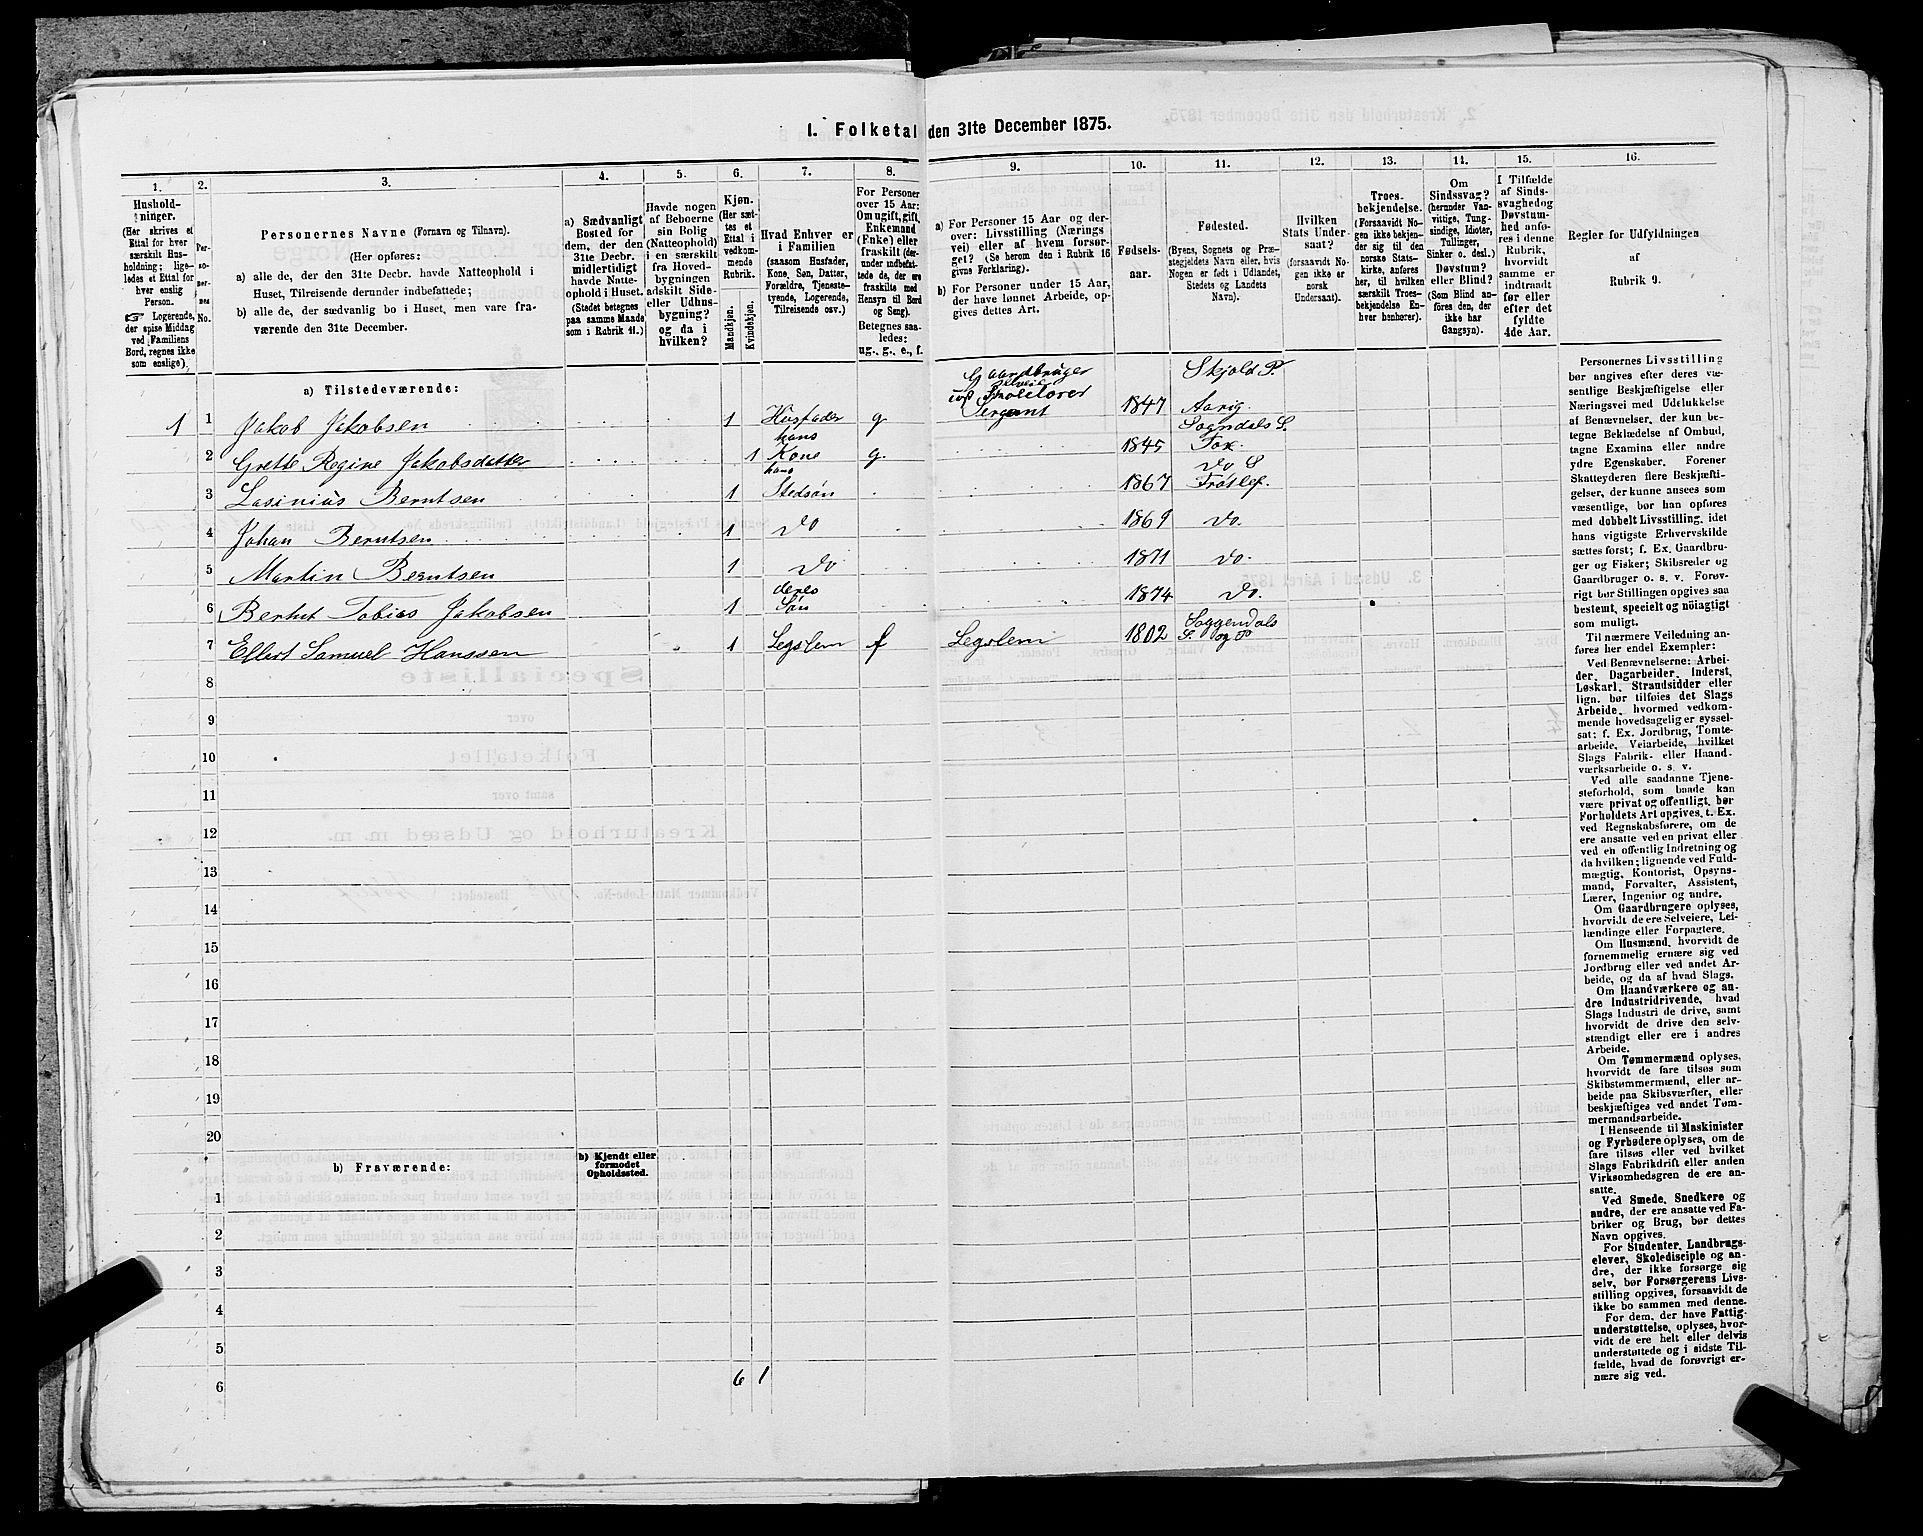 1. Folketal den 31te December 1875.
1.
2.
3.
4.
5.
6.
7.
8.
9.
10.
11.
12.
13.
14.
15.
16.
Hushold-
ninger.
(Her skrives et
Ettal for hver
særskilt Hus-
holdning; lige-
ledes et Ettal for
hver enslig
Person.
☞ Logerende,
der spise Middag
ved Familiens
Bord, regnes ikke
som enslige).
Per-
so-
ner-
nes
No.
Personernes Navne (Fornavn og Tilnavn).
(Her opføres:
a) alle de, der den 31te Decbr. havde Natteophold i
Huset, Tilreisende derunder indbefattede;
b) alle de, der sædvanlig bo i Huset, men vare fra-
værende den 31te December.
a) Sædvanligt
Bosted for
dem, der den
31te Decbr.
midlertidigt
havde Natte-
ophold i Huset.
(Stedet betegnes
paa samme Maade
som i Rubrik 11.)
Havde nogen
af Beboerne
sin Bolig
(Natteophold)
i en særskilt
fra Hoved-
bygningen
adskilt Side-
eller Udhus-
bygning?
og da i
hvilken?
Kjøn.
(Her sæt-
tes et
Ettal i
vedkom-
mende
Rubrik.
Mandkjøn.
Kvindekjøn.
Hvad Enhver er
i Familien
(saasom Husfader,
Kone, Søn, Datter,
Forældre, Tjeneste-
tyende, Logerende,
Tilreisende osv.)
For Personer
over 15 Aar:
Om ugift, gift,
Enkemand
(Enke) eller
fraskilt (der-
under indbefat-
tede de, der ere
fraskilte med
Hensyn til Bord
og Seng).
Betegnes saa-
ledes:
ug., g., e., f.
a) For Personer 15 Aar og der-
over: Livsstilling (Nærings
vei) eller af hvem forsør-
get? (Se herom den i Rubrik 16
givne Forklaring).
b) For Personer under 15 Aar,
der have lønnet Arbeide, op-
gives dettes Art.
Fødsels-
aar.
Fødested.
(Byens, Sognets og Præ-
stegjeldets Navn eller, hvis
Nogen er født i Udlandet,
Stedets og Landets
Navn).
Hvilken
Stats Under-
saat?
(forsaavidt No-
gen ikke er
norsk
Undersaat).
Troes-
bekjendelse.
(Forsaavidt No-
gen ikke bekjen-
der sig til den
norske Stats-
kirke, anføres
her, til hvilken
særskilt Troes-
bekjendelse En-
hver henhører).
Om
Sindssvag?
(herunder Van-
vittige, Tung-
sindige, Idioter,
Tullinger,
Sinker o. desl.)
Døvstum?
eller Blind?
(Som Blind an-
føres den, der
ikke har
Gangsyn).
I Tilfælde
af Sinds-
svaghed og
Døvstum-
hed anfø-
res i denne
Rubrik,
hvorvidt
samme er
indtraadt
før eller
efter det
fyldte
4de Aar.
Regler for Udfyldningen
af
Rubrik 9.
a) Tilstedeværende:
1 1 Jakob Jakobsen 1 Husfader g Gaardbruger Selveier og Skolelærer Sergant 1847 Skjold P. Aarig
2 Grette Regine Jakobsdatter 1 hans Kone g. 1845 Sogndals S. Fox.
3 Lasinius Berntsen 1 hans Stedsøn 1867 Do S Frøslef.
4 Johan Berntsen 1 Do 1869 Do.
5 Martin Berntsen 1 Do 1871 Do.
6 Bernt Tobias Jakobsen 1 deres Søn 1874 Do.
7 Ellert Samuel Hanssen 1 Legslem f Legslem 1802 Soggendals S. og P
8
9
10
11
12
13
14
15
16
17
18
19
20
b) Fraværende:
b) Kjendt eller
formodet
Opholdssted.
1
2
3
4
5
6
6 1
Personernes Livsstilling
bør angives efter deres væ-
sentlige Beskjæftigelse eller
Næringsvei med Udelukkelse
af Benævnelser, der kun be-
tegne Beklædelse af Ombud,
tagne Examina eller andre
ydre Egenskaber. Forener
Skatteyderen flere Beskjæfti-
gelser, der kunne ansees som
væsentlige, bør han opføres
med dobbelt Livsstilling, idet
hans vigtigste Erhvervskilde
sættes først; f. Ex. Gaardbru-
ger og Fisker; Skibsreder og
Gaardbruger o. s. v. Forøv-
rigt bør Stillingen opgives saa
bestemt, specielt og nöiagtigt
som muligt.
Til nærmere Veiledning an-
føres her endel Exempler:
Ved Benævnelserne: Arbei-
der, Dagarbeider, Inderst,
Løskarl, Strandsidder eller
lign. bør tilføies det Slags
Arbeide, hvormed vedkom-
mende hovedsagelig er syssel-
sat; f. Ex. Jordbrug, Tomte-
arbeide, Veiarbeide, hvilket
Slags Fabrik- eller Haand-
værksarbeide o. s. v.
Ved alle saadanne Tjene-
steforhold, som baade kan
være privat og offentligt, bør
Forholdets Art opgives, t. Ex.
ved Regnskabsførere, om de
ere ansatte ved en privat eller
ved en offentlig Indretning og
da hvilken; lignende ved Fuld-
mægtig, Kontorist, Opsyns-
mand, Forvalter, Assistent,
Lærer, Ingeniør og andre.
Om Gaardbrugere oplyses,
hvorvidt de ere Selveiere, Lei-
lændinge eller Forpagtere.
Om Husmænd, hvorvidt de
fornemmelig ernære sig ved
Jordbrug eller ved andet Ar-
beide, og da af hvad Slags.
Om Haandværkere og an-
dre Industridrivende, hvad
Slags Industri de drive, samt
hvorvidt de drive den selv-
stændigt eller ere i andres
Arbeide.
Om Tømmermænd oplyses,
hvorvidt de fare tilsøs som
Skibstømmermænd, eller ar-
beide paa Skibsværfter, eller
beskjæftiges ved andet Tøm-
mermandsarbeide.
I Henseende til Maskinister
og Fyrbødere oplyses, om de
fare tilsøs eller ved hvilket
Slags Fabrikdrift eller anden
Virksomhedsgren de ere an-
satte.
Ved Smede, Snedkere og
andre, der ere ansatte ved Fa-
briker og Brug, bør dettes
Navn opgives.
For Studenter, Landbrugs-
elever, Skoledisciple og an-
dre, der ikke forsørge sig
selv, bør Forsørgerens Livs-
stilling opgives, forsaavidt de
ikke bo sammen med denne.
For dem, der have Fattig-
understøttelse, oplyses, hvor-
vidt de ere helt eller delvis
understøttede og i sidste Til-
fælde, hvad de forøvrigt er-
nære sig ved.